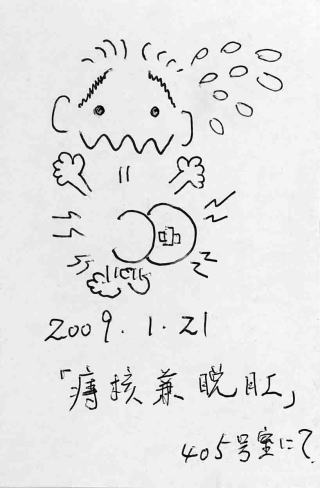 2009.1.21
「痔核兼脱肛」
405号室にて